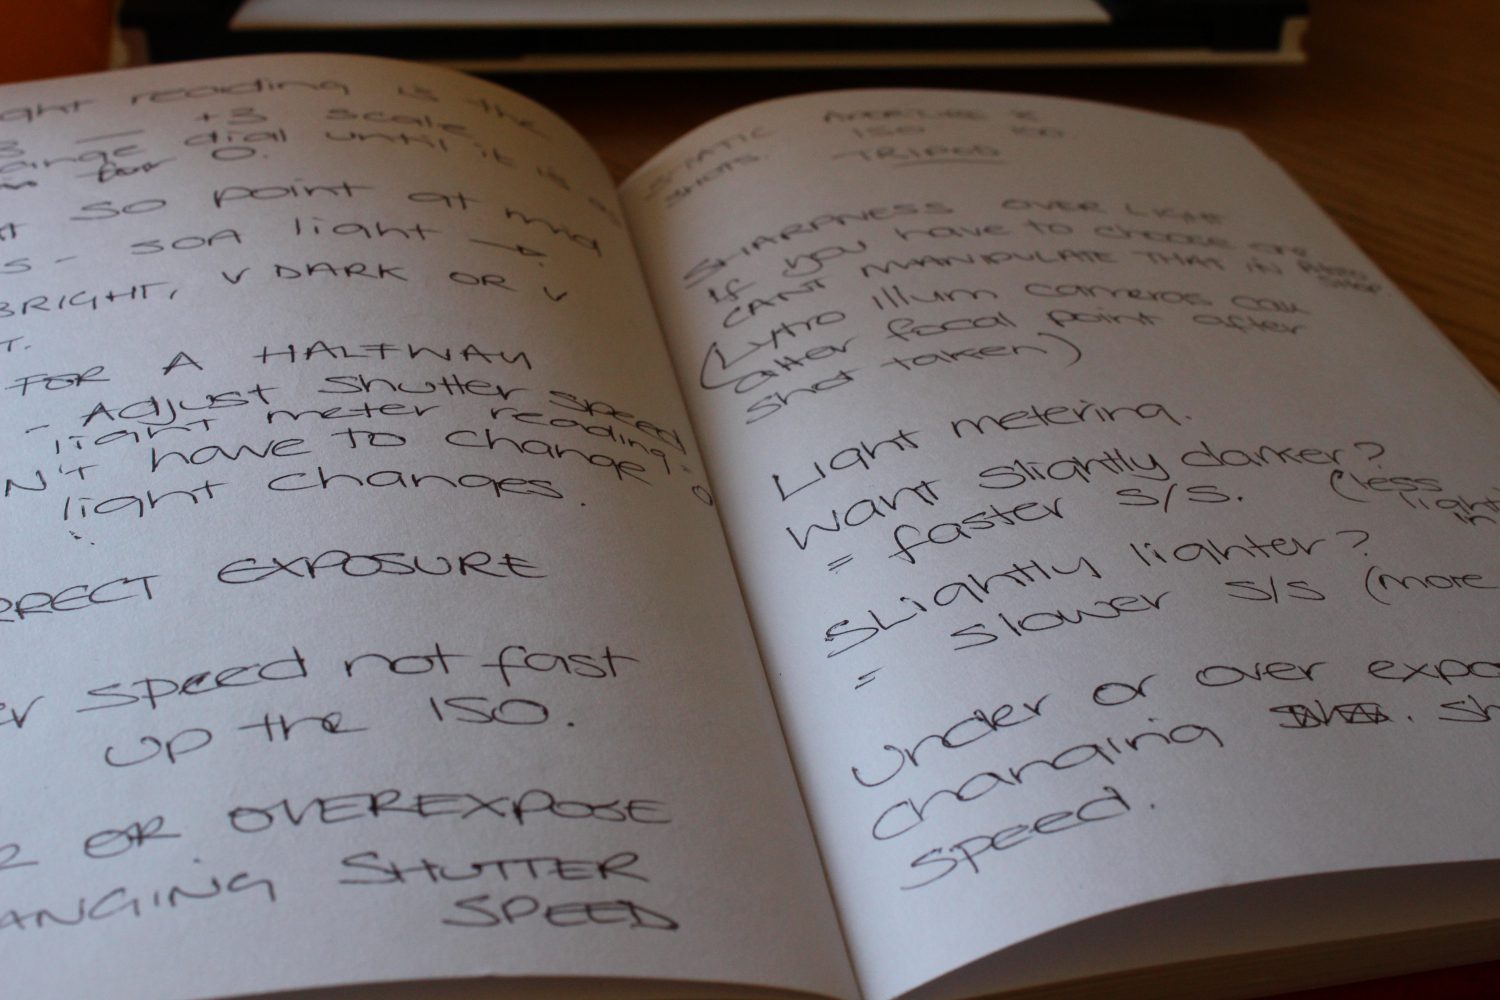 reading is the
+3 scale
dial until it is
0.
so point at mid
S - SOA light →
BRIGHT, V DARK OR V
T.
FOR A HALFWAY
- Adjust shutter speed
light meter reading = 0
N't have to change
light changes.
RRECT EXPOSURE
er speed not fast
up the ISO.
R OR OVEREXPOSE
ANGING SHUTTER
SPEED
STATIC SHOTS.
APERTURE
ISO 100
TRIPOD
SHARPNESS OVER LIGHT
If you have to choose one
CAN'T MANIPULATE THAT IN PHOTO
SHOP.
(Lytro illum cameras can
alter focal point after
shot taken)
Light metering.
Want slightly darker?
= faster s/s. (less
light
in
Slightly lighter?
= slower s/s (more
under or over expo
changing . Sh
speed.